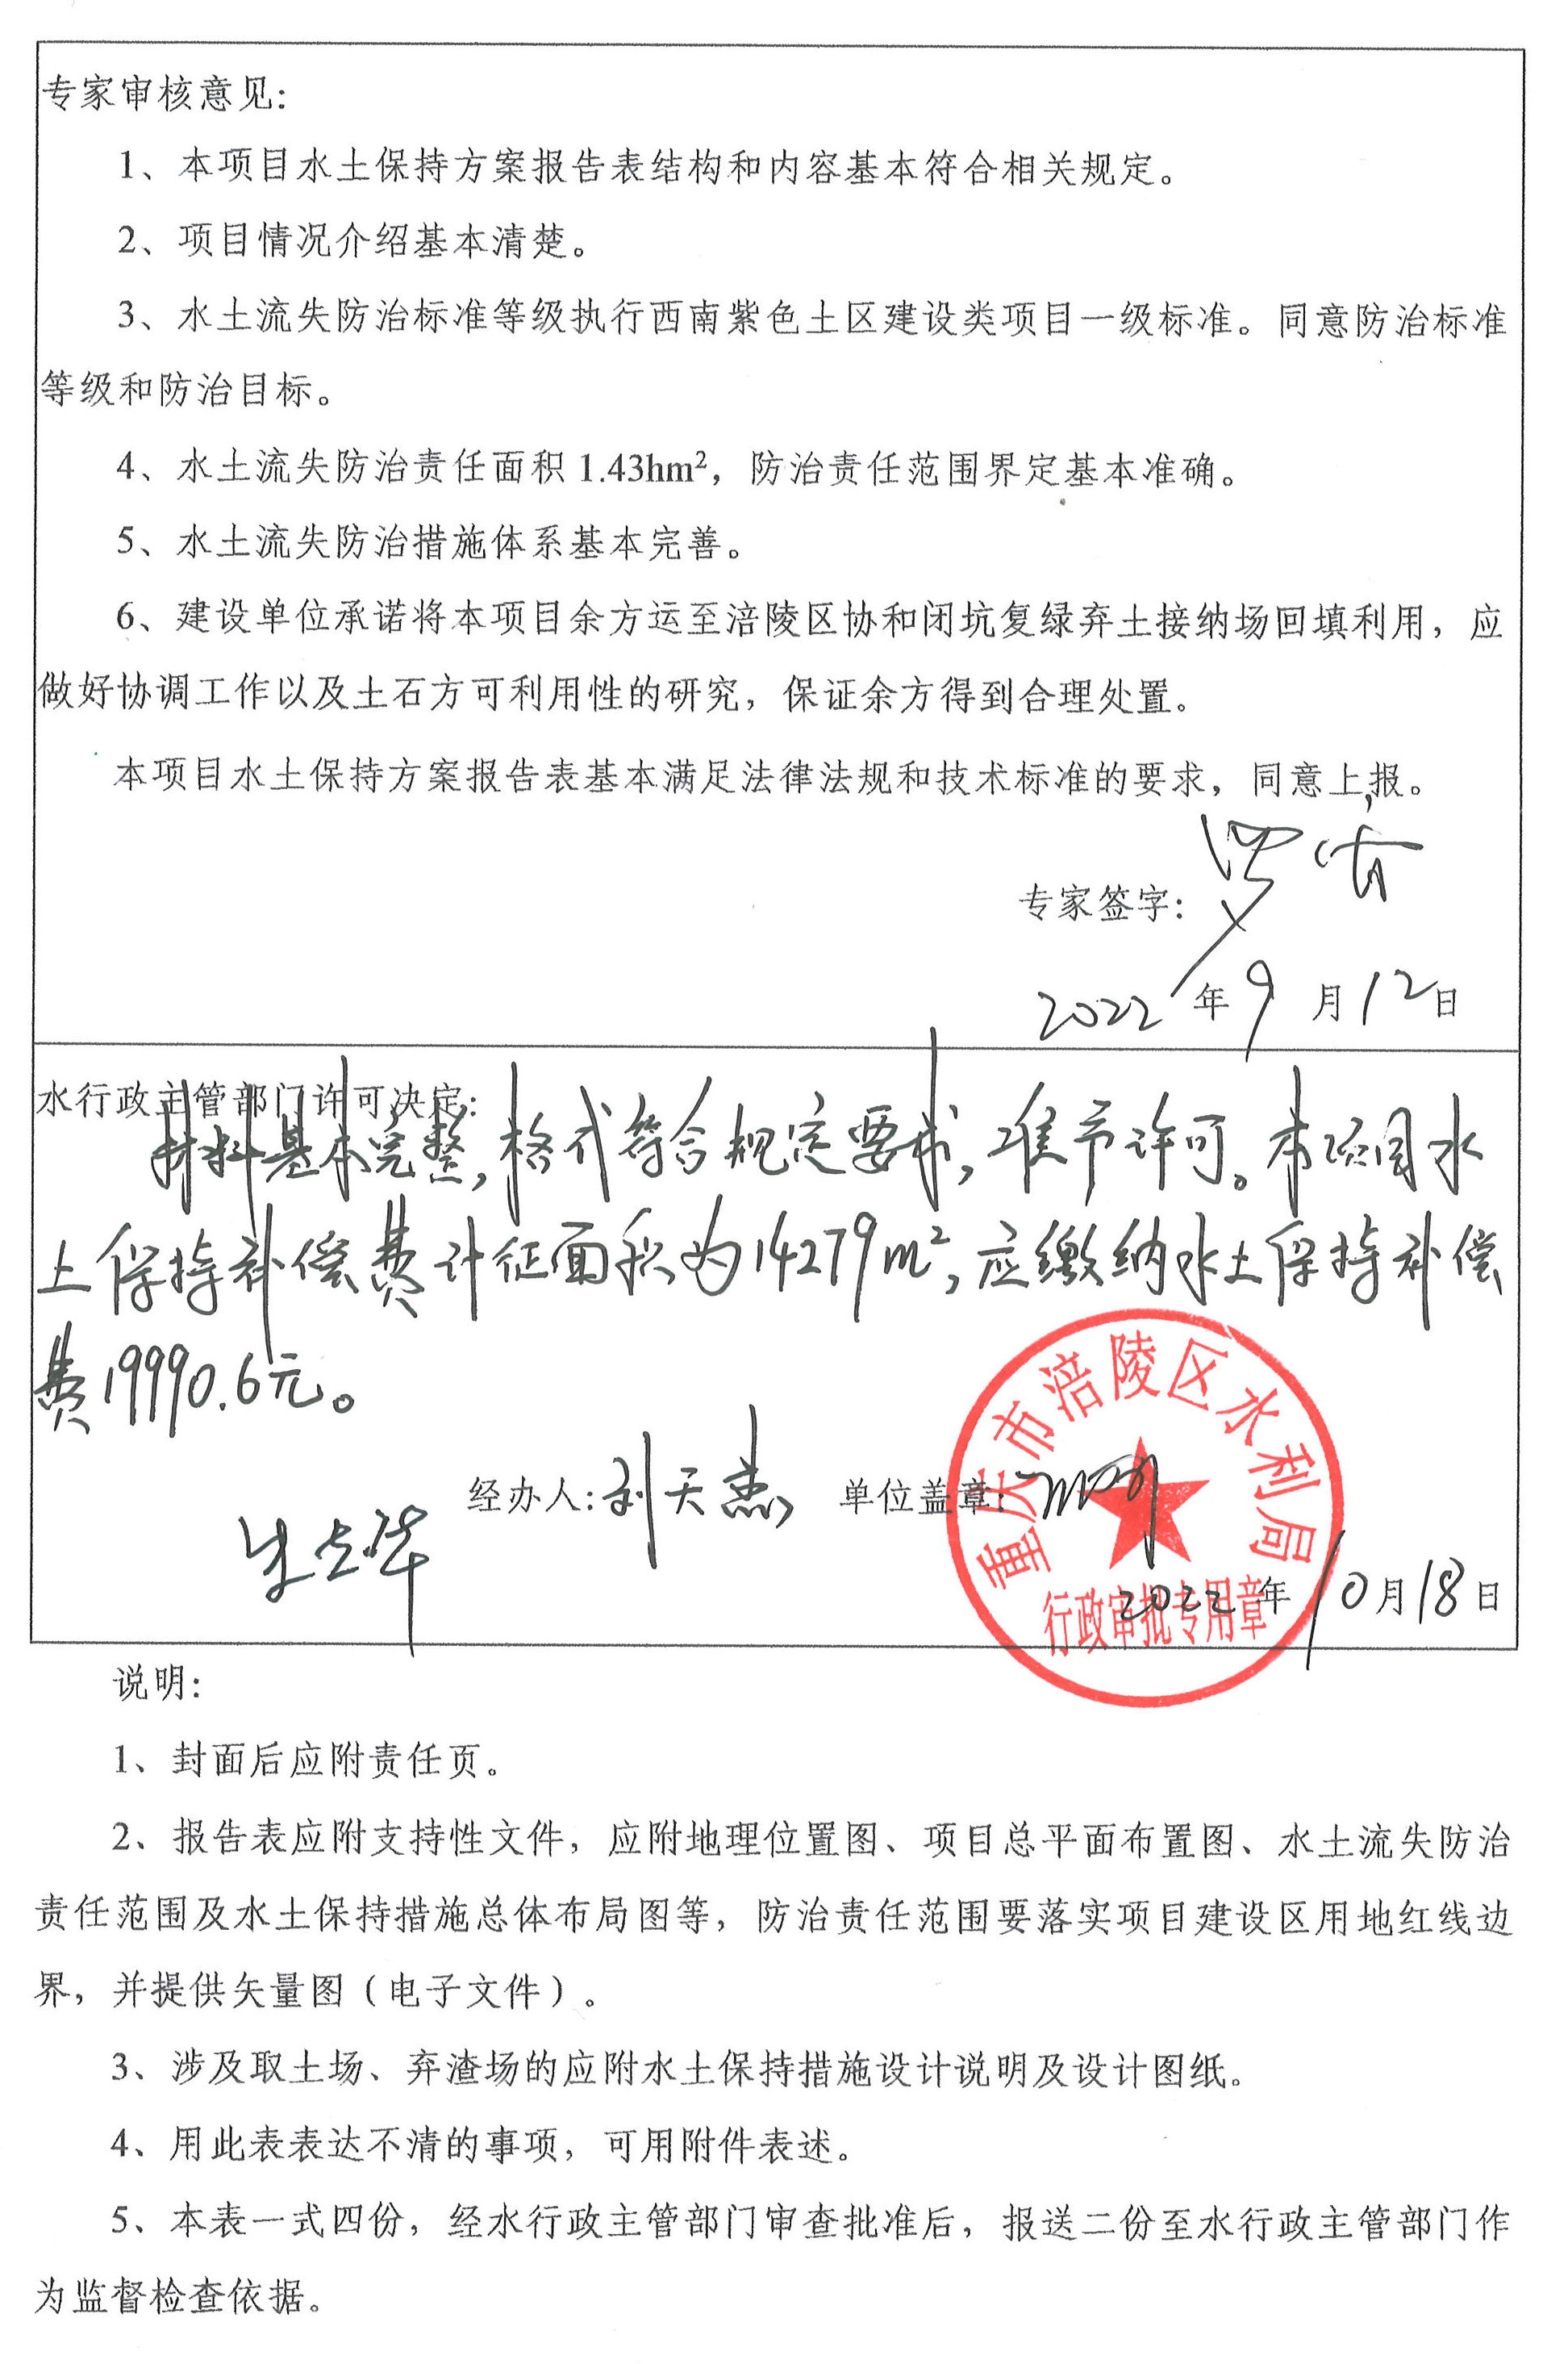 专家审核意见：
1、本项目水土保持方案报告表结构和内容基本符合相关规定。
2、项目情况介绍基本清楚。
3、水土流失防治标准等级执行西南紫色土区建设类项目一级标准。同意防治标准
等级和防治目标。
4、水土流失防治责任面积 1.43hm²，防治责任范围界定基本准确。
5、水土流失防治措施体系基本完善。
6、建设单位承诺将本项目余方运至涪陵区协和闭坑复绿弃土接纳场回填利用，应
做好协调工作以及土石方可利用性的研究，保证余方得到合理处置。
本项目水土保持方案报告表基本满足法律法规和技术标准的要求，同意上报。
专家签字：罗
2022年9月12日
水行政主管部门许可决定：
材料基本完整，格式符合规定要求，准予许可。本项目水
土保持补偿费计征面积为14279m²，应缴纳水土保持补偿
费19990.6元。
经办人：刘天 单位盖章：
重庆市涪陵区水利局
行政审批专用章
2022年10月18日
说明：
1、封面后应附责任页。
2、报告表应附支持性文件，应附地理位置图、项目总平面布置图、水土流失防治
责任范围及水土保持措施总体布局图等，防治责任范围要落实项目建设区用地红线边
界，并提供矢量图（电子文件）。
3、涉及取土场、弃渣场的应附水土保持措施设计说明及设计图纸。
4、用此表表达不清的事项，可用附件表述。
5、本表一式四份，经水行政主管部门审查批准后，报送二份至水行政主管部门作
为监督检查依据。